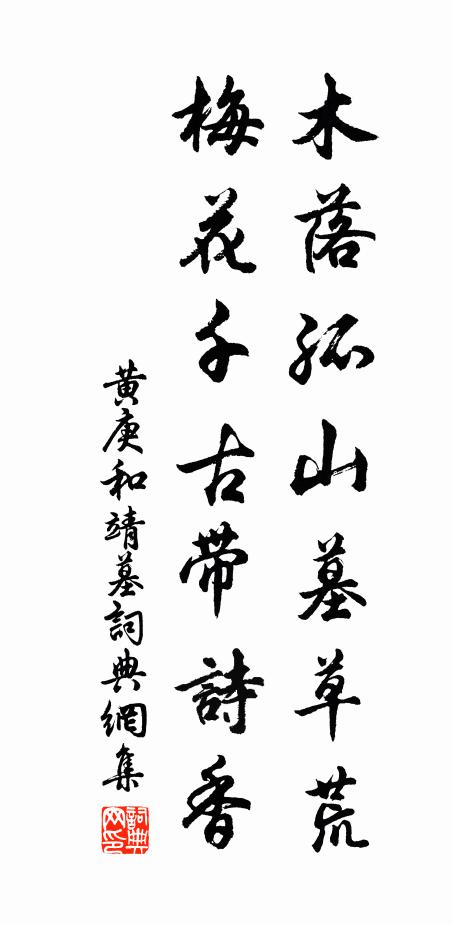 木落孤山墓草荒
梅花千古带詩香
黄庚和靖墓詞典網集
詞典网印